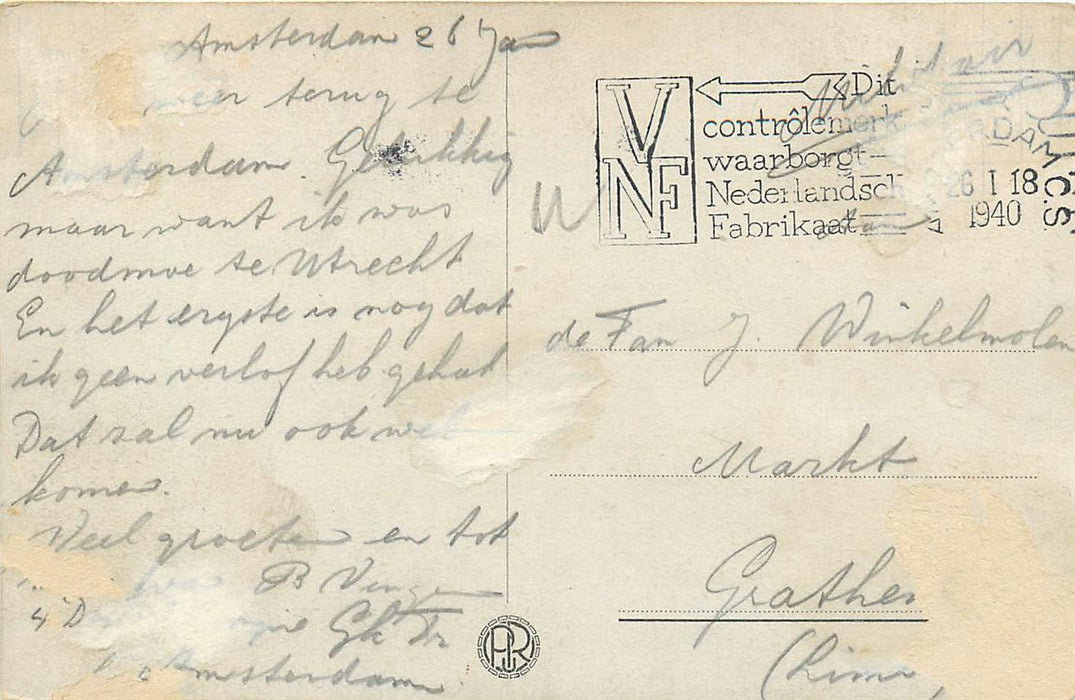 Amsterdam 26 Jan
weer terug te
Amsterdam. Gelukkig
maar want ik was
doodmoe te Utrecht
En het ergste is nog dat
ik geen verlof heb gehad
Dat zal nu ook wel
komen.
Veel groeten en tot
B
4
Amsterdam.
VNF
Dit
contrôlemerk
waarborgt
Nederlandsch
Fabrikaat
RDAM C.S.
26 I 18
1940
de Fam J. Winkelmolen
Markt
Grathem
(Lim